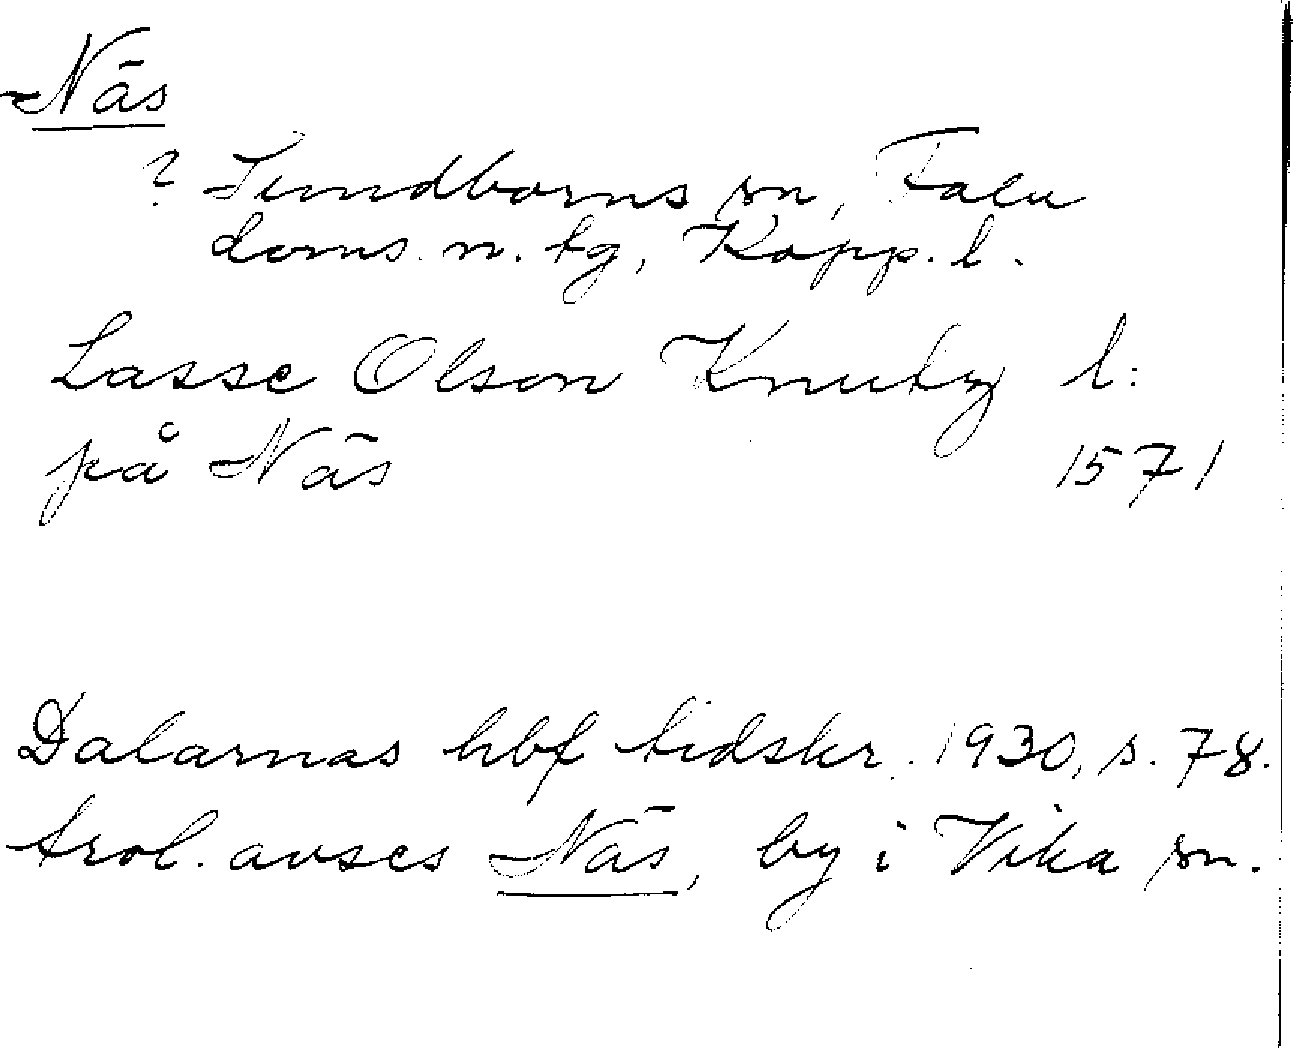 Näs
? Sundborns sn, Falu
doms. n. tg, Kopp. l.
Lasse Olson Knutz l:
på Näs 1571
Dalarnas hbf tidskr. 1930, s. 78.
trol. avses Näs, by i Vika sn.